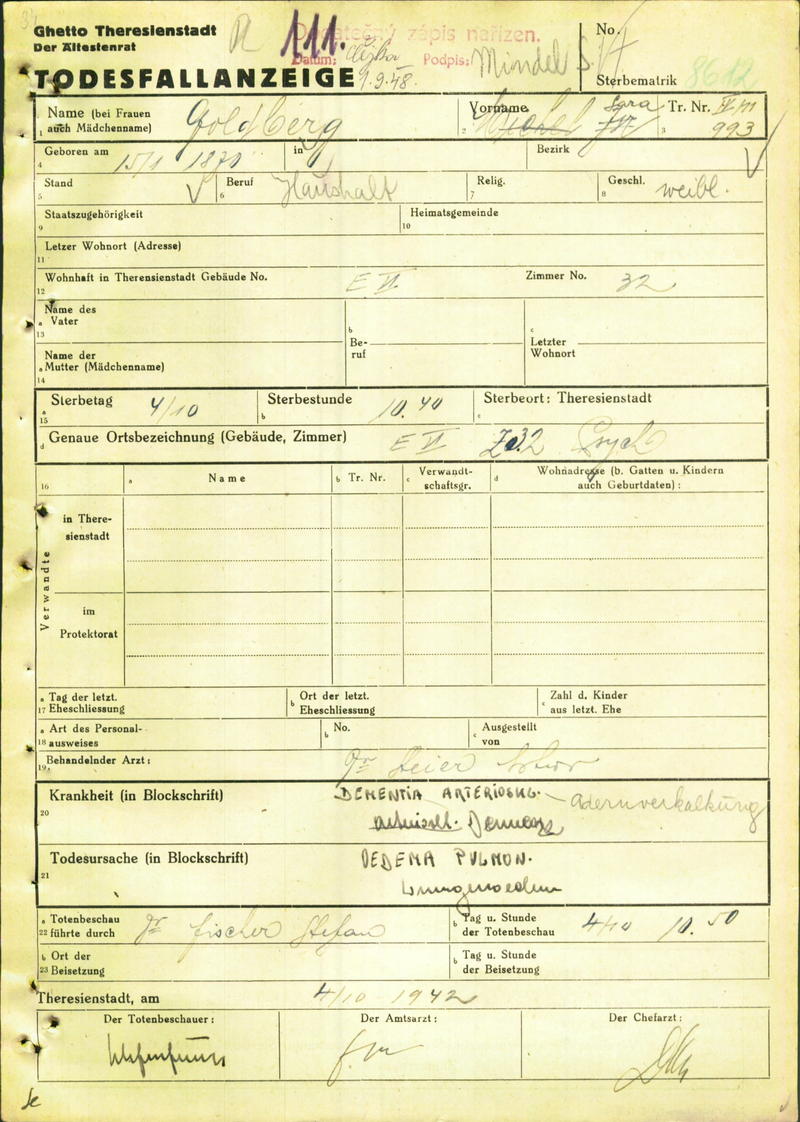 Ghetto Theresienstadt
Der Ältestenrat
TODESFALLANZEIGE
111.
Dodatečný zápis nařízen.
Datum: 1.9.48. Podpis:
No.
Sterbematrik 8612
Name (bei Frauen auch Mädchenname) Goldberg
1
Vorname Sara
2
Tr. Nr. 993
3
Geboren am 15/1 1871
4
in
Bezirk
Stand
5
Beruf Haushalt
6
Relig.
7
Geschl. weibl.
8
Staatszugehörigkeit
9
Heimatsgemeinde
10
Letzer Wohnort (Adresse)
11
Wohnhaft in Therensienstadt Gebäude No. E VI
12
Zimmer No. 32
Name des
a Vater
13
b
Be-
ruf
c
Letzter
Wohnort
Name der
a Mutter (Mädchenname)
14
Sterbetag 4/10
a
15
Sterbestunde 10.40
b
Sterbeort: Theresienstadt
c
d Genaue Ortsbezeichnung (Gebäude, Zimmer) E VI 32 Psych
16
a Name
b Tr. Nr.
c Verwandt-
schaftsgr.
d Wohnadresse (b. Gatten u. Kindern
auch Geburtdaten) :
Verwandte
in There-
sienstadt
im
Protektorat
a Tag der letzt.
17 Eheschliessung
b Ort der letzt.
Eheschliessung
c Zahl d. Kinder
aus letzt. Ehe
a Art des Personal-
18 ausweises
b No.
c Ausgestellt
von
Behandelnder Arzt:
19
Krankheit (in Blockschrift) DEMENTIA ARTERIOSKL. - Adernverkalkung
20
Todesursache (in Blockschrift) OEDEMA PULMON.
21
Lungenoedem
a Totenbeschau
22 führte durch Dr Fischer Stefan
b Tag u. Stunde
der Totenbeschau 4/10 10.50
b Ort der
23 Beisetzung
b Tag u. Stunde
der Beisetzung
Theresienstadt, am 4/10 1942
Der Totenbeschauer:
Der Amtsarzt:
Der Chefarzt: